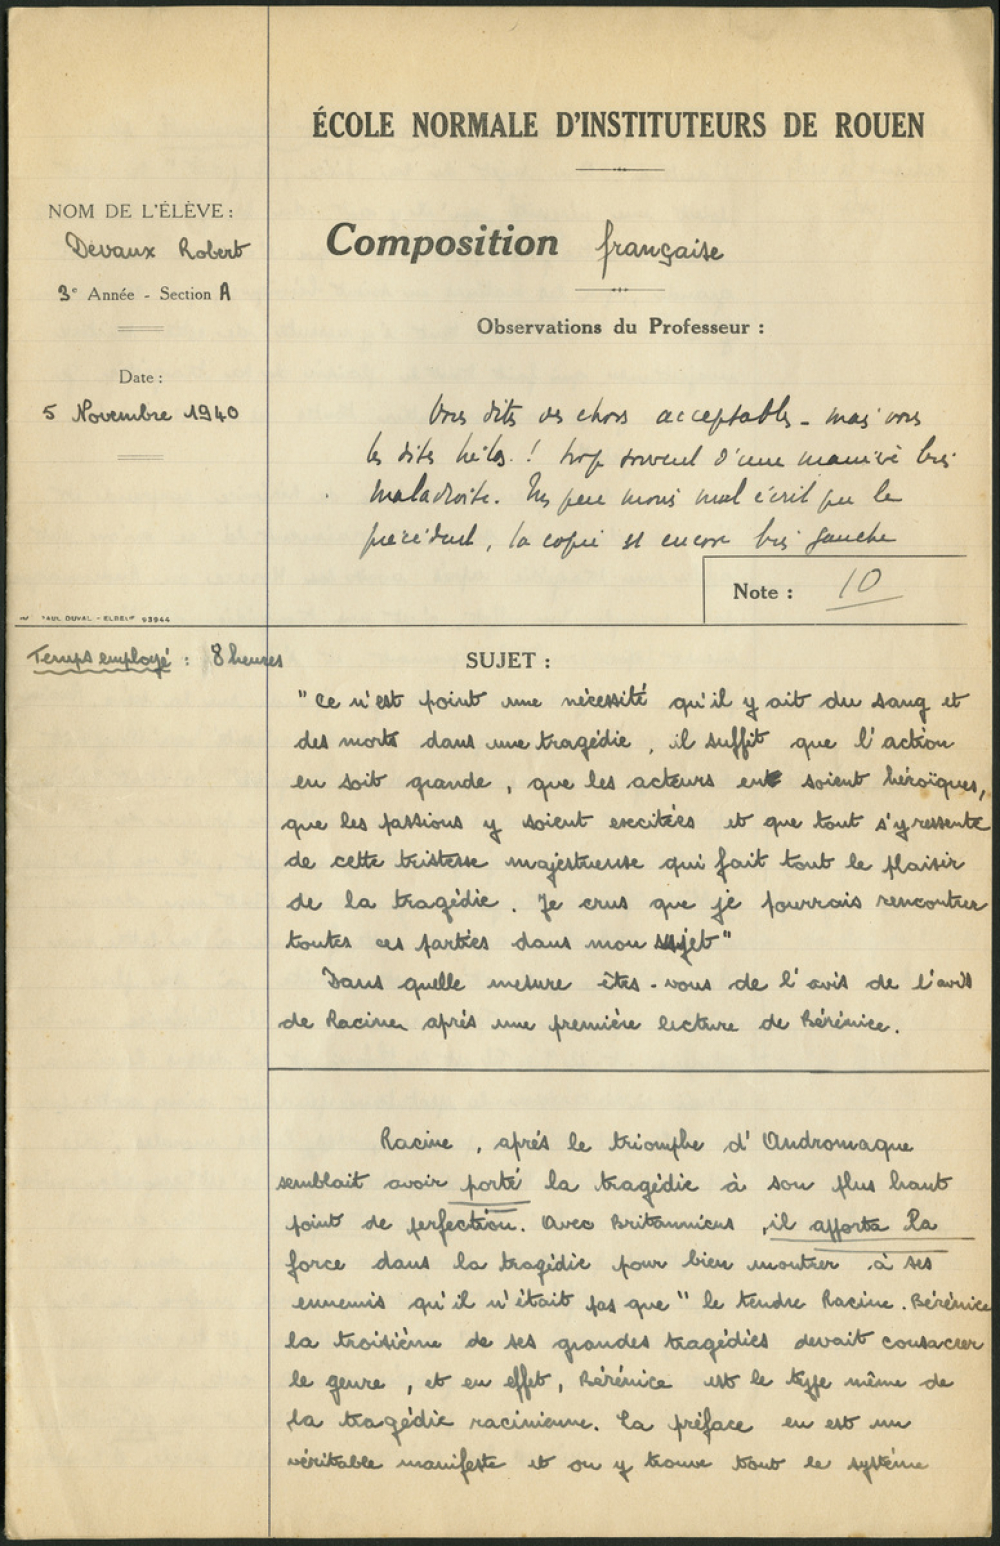 ÉCOLE NORMALE D'INSTITUTEURS DE ROUEN
NOM DE L'ÉLÈVE :
Devaux Robert
3e Année - Section A
Date :
5 Novembre 1940
Composition française
Observations du Professeur :
Vous dites des choses acceptables - mais vous
les dites hélas ! trop souvent d'une manière très
maladroite. Un peu moins mal écrit que le
précédent, la copie est encore très gauche
Note : 10
PAUL DUVAL - ELBEUF 93944
Temps employé : 8 heures
SUJET :
"Ce n'est point une nécessité qu'il y ait du sang et
des morts dans une tragédie, il suffit que l'action
en soit grande, que les acteurs en soient héroïques,
que les passions y soient excitées et que tout s'y ressente
de cette tristesse majestueuse qui fait tout le plaisir
de la tragédie. Je crus que je pourrais rencontrer
toutes ces parties dans mon sujet"
Dans quelle mesure êtes-vous de l'avis de l'avis
de Racine après une première lecture de Bérénice.
Racine, après le triomphe d'Andromaque
semblait avoir porté la tragédie à son plus haut
point de perfection. Avec Britannicus, il apporta la
force dans la tragédie pour bien montrer à ses
ennemis qu'il n'était pas que " le tendre Racine. Bérénice
la troisième de ses grandes tragédies devait consacrer
le genre, et en effet, Bérénice est le type même de
la tragédie racinienne. La préface en est un
véritable manifeste et on y trouve tout le système